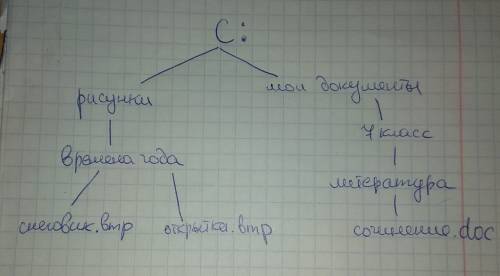 C:
рисунки мои документы
7 класс
Времена года
литература
снеговик.bmp открытка.bmp сочинение.doc